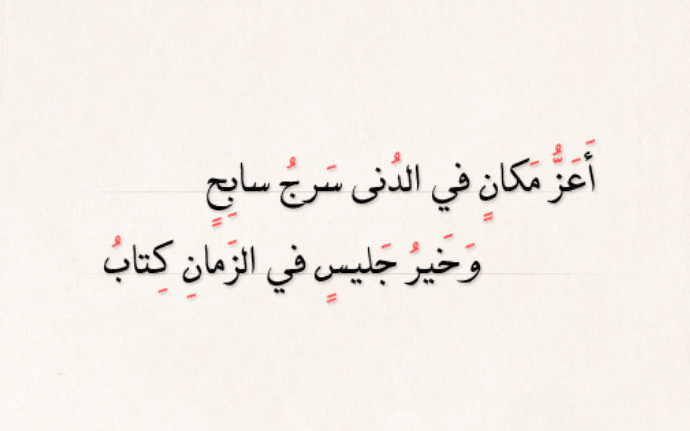 أَعَزُّ مَكانٍ في الدُنى سَرجُ سابِحٍ
وَخَيرُ جَليسٍ في الزَمانِ كِتابُ